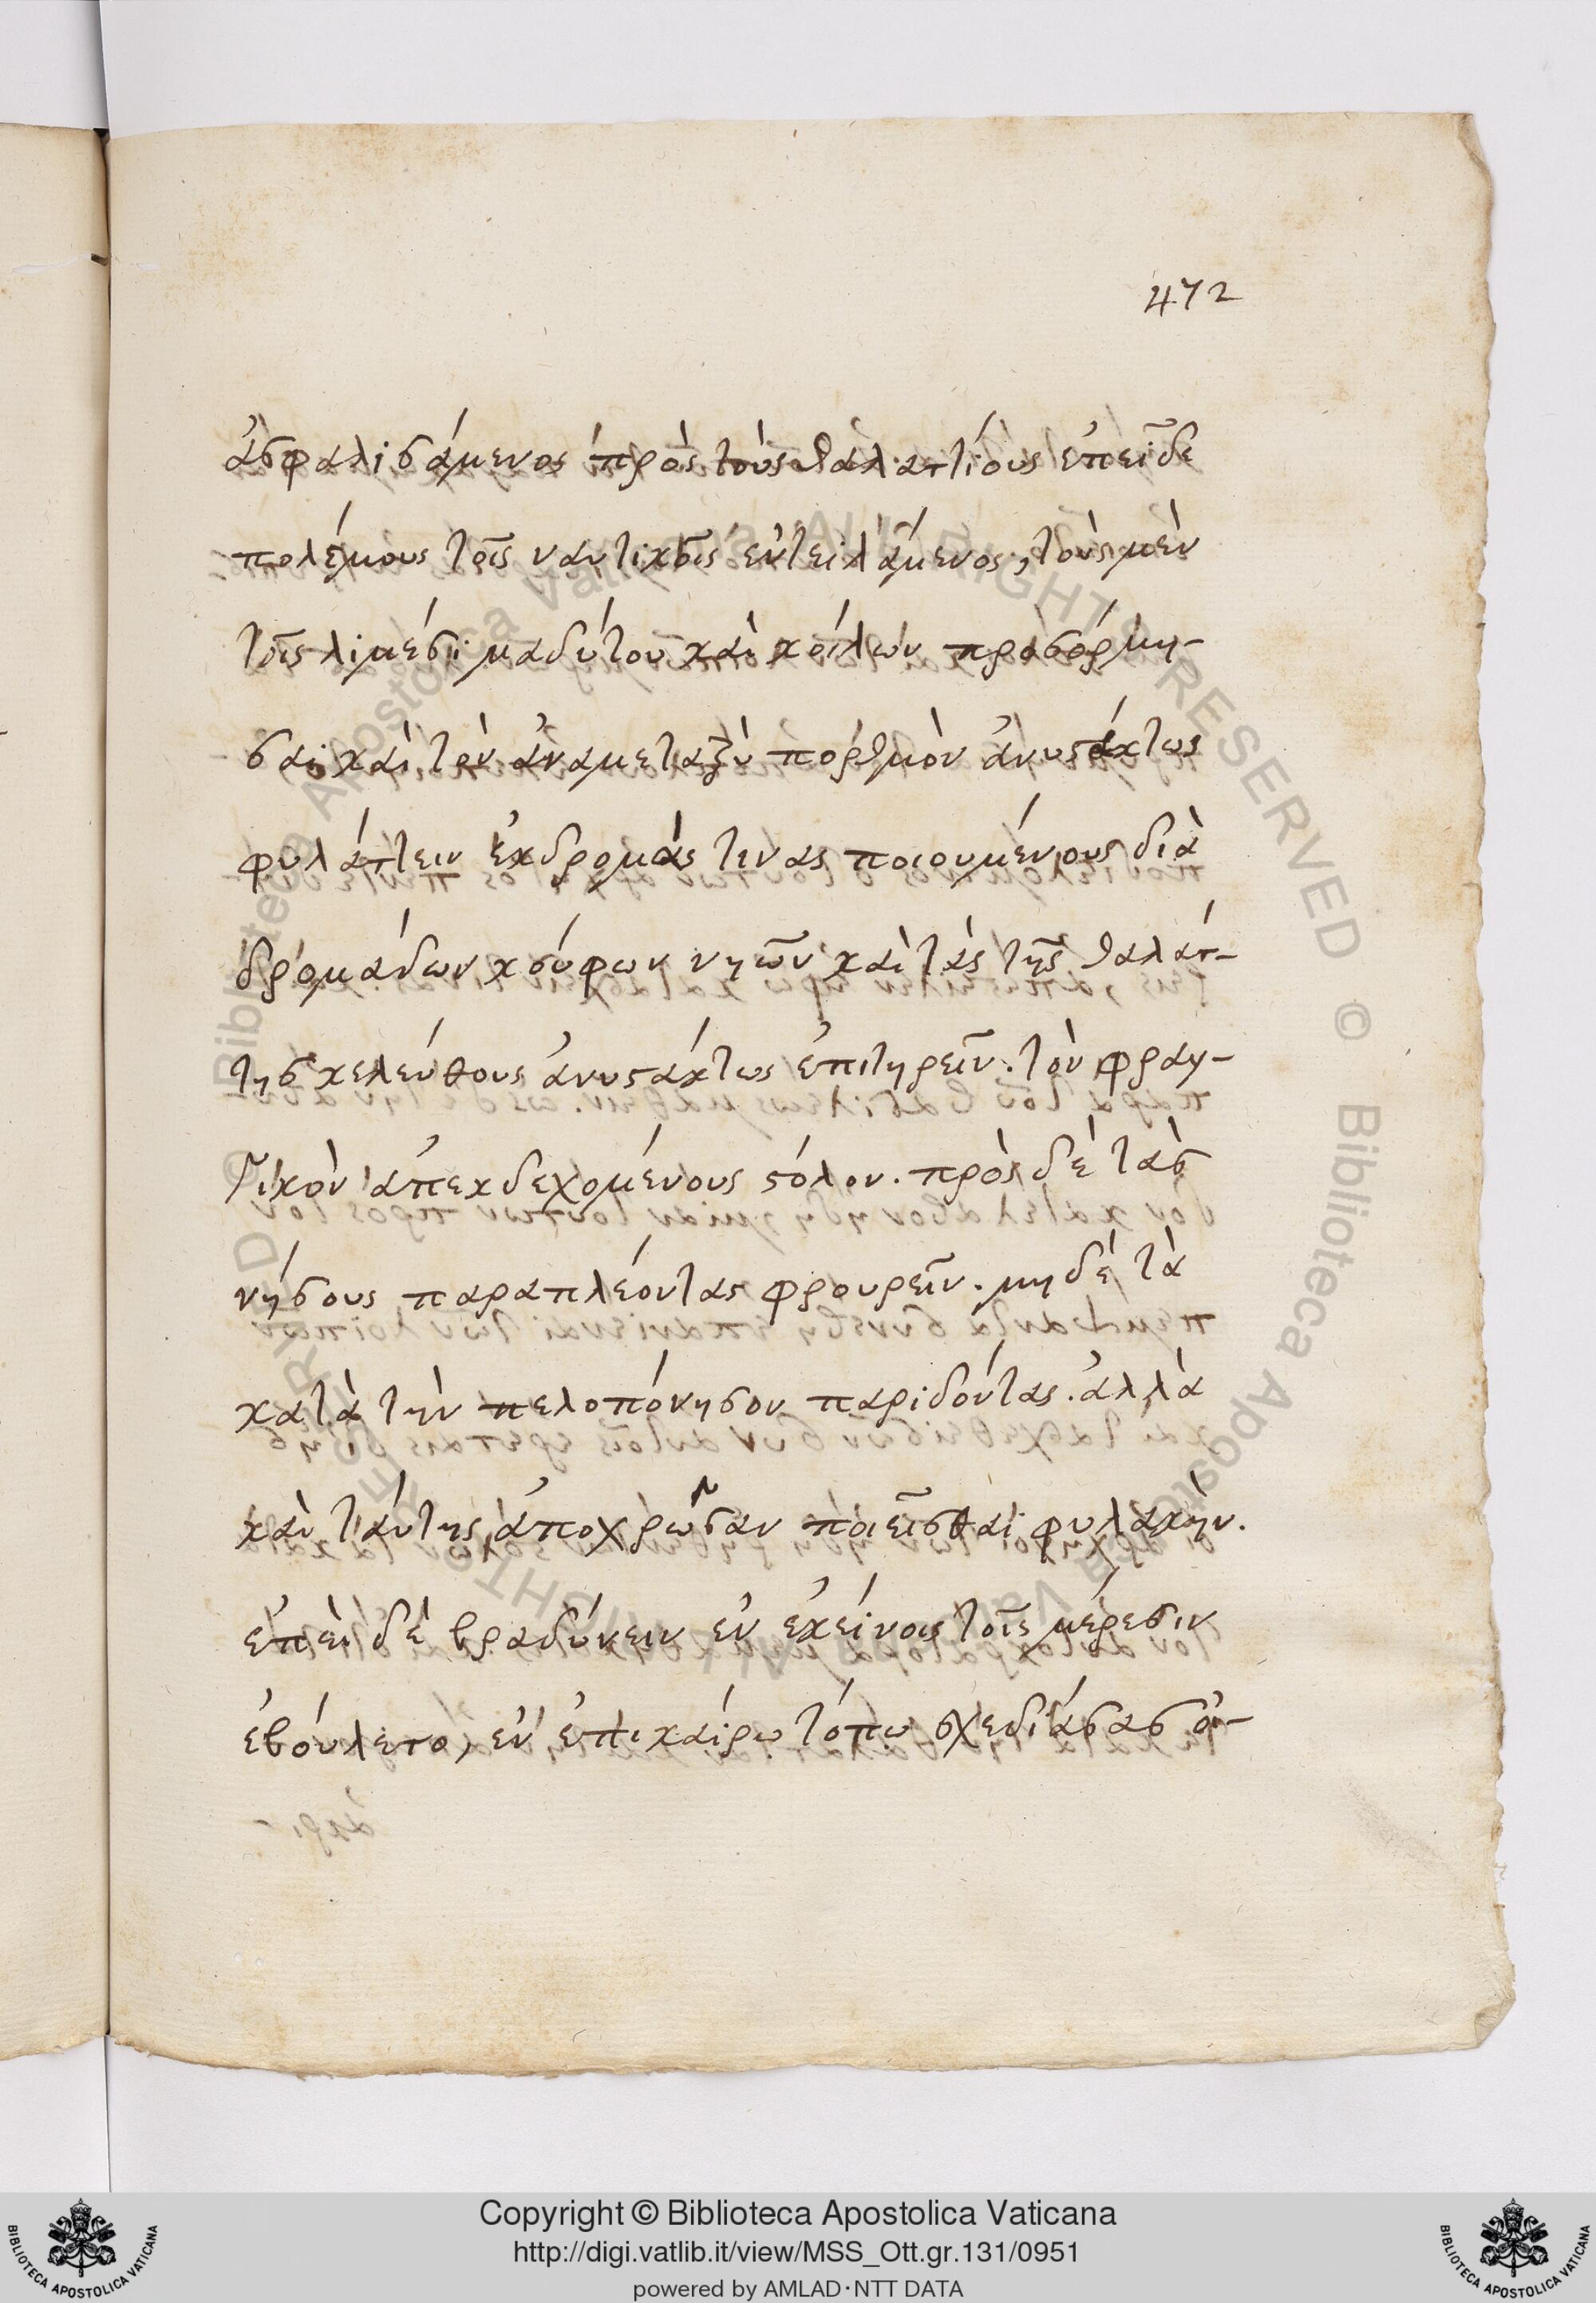 472
ἀσφαλισάμενος πρὸς τοὺς θαλαττίους ἐπεῖδε
πολέμους τοῖς ναυτικοῖς ἐντειλάμενος, τοὺς μὲν
τοῖς λιμέσι μαδύτου καὶ κοίλων προσορμῆ-
σαι καὶ τὸν ἀναμεταξὺ πορθμὸν ἀνυστάκτως
φυλάττειν ἐκδρομάς τινας ποιουμένους διὰ
δρομάδων κούφων νηῶν καὶ τὰς τῆς θαλάτ-
της κελεύθους ἀνυστάκτως ἐπιτηρεῖν. τὸν φραγ-
γικὸν ἀπεκδεχομένους στόλον. πρὸς δὲ τὰς
νήσους παραπλέοντας φρουρεῖν. μηδὲ τὰ
κατὰ τὴν πελοπόνησον παριδόντας. ἀλλὰ
καὶ ταύτης ἀποχρῶσαν ποιεῖσθαι φυλακήν.
ἐπεὶ δὲ βραδύνειν ἐν ἐκείνοις τοῖς μέρεσιν
ἐβούλετο, ἐν ἐπικαίρῳ τόπῳ σχεδιάσας οἰ-
Copyright © Biblioteca Apostolica Vaticana
http://digi.vatlib.it/view/MSS_Ott.gr.131/0951
powered by AMLAD·NTT DATA